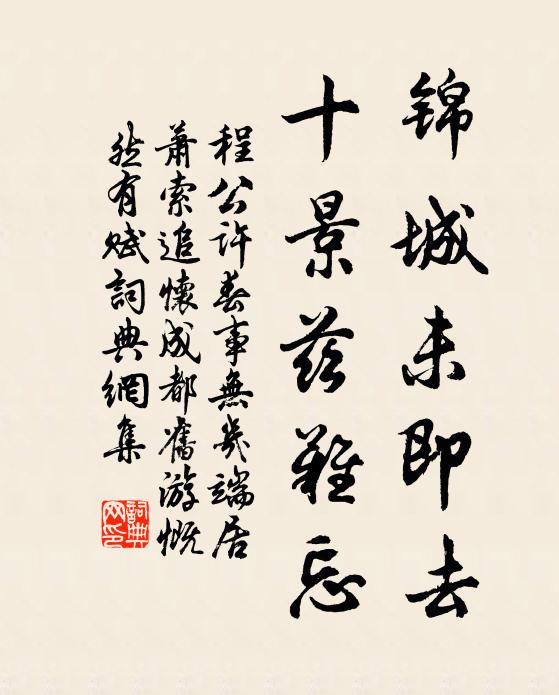 錦城未即去
十景茲難忘
程公許春事無幾端居
蕭索追懷成都舊游慨
然有賦詞典網集
詞典
网印